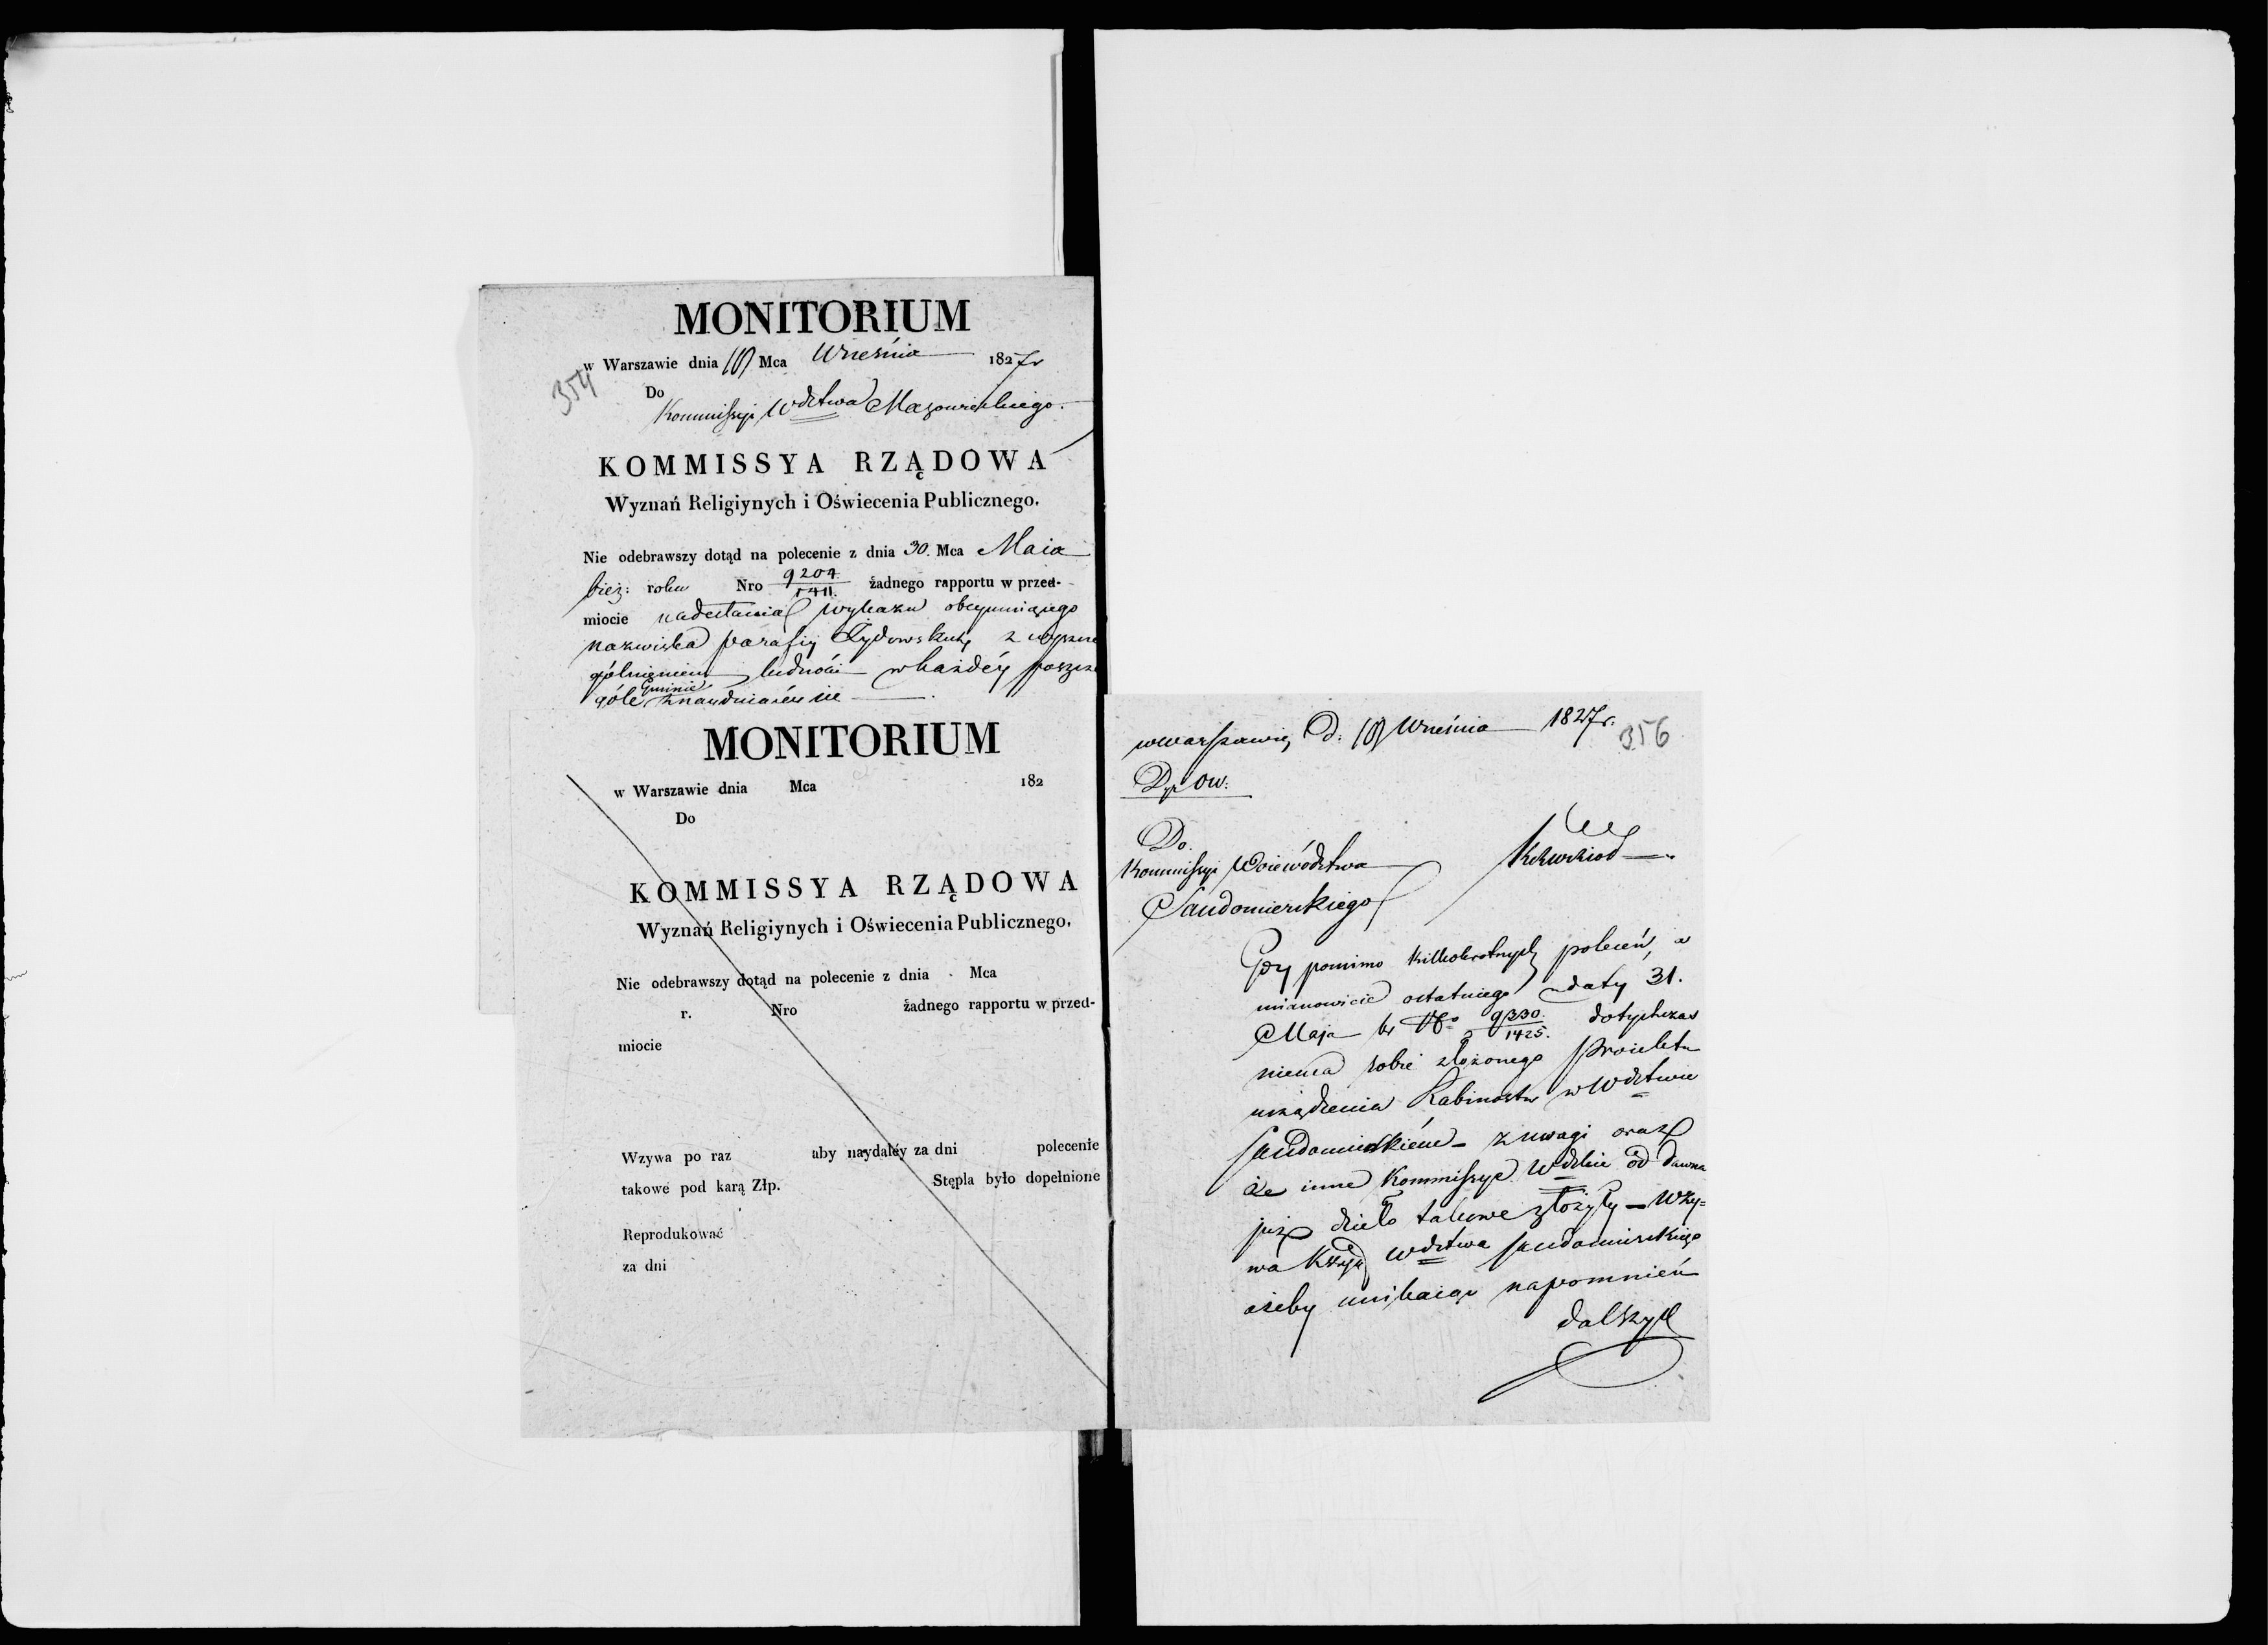 MONITORIUM
w Warszawie dnia 10 Mca Września 1827 r
354
Do
Kommissyi Wdztwa Mazowieckiego.
KOMMISSYA RZĄDOWA
Wyznań Religiynych i Oświecenia Publicznego.
Nie odebrawszy dotąd na polecenie z dnia 30. Mca Maia
bież: roku Nro 9204 żadnego rapportu w przed-
miocie nadesłania wykazu obeymuiącego
nazwiska parafiy Żydowskich z wyszcze
gólnieniem ludności w każdéy poszcze
góle Gminie znayduiącéy się
MONITORIUM
w Warszawie dnia Mca 182
Do
KOMMISSYA RZĄDOWA
Wyznań Religiynych i Oświecenia Publicznego.
Nie odebrawszy dotąd na polecenie z dnia Mca
r. Nro żadnego rapportu w przed-
miocie
Wzywa po raz aby naydaléy za dni polecenie
takowe pod karą Złp. Stępla było dopełnione
Reprodukować
za dni
w Warszawie, D: 10 Września 1827 r.
356
Do
Kommissyi Woiewództwa
Sandomierskiego
Gdy pomimo kilkokrotnych poleceń, a
mianowicie ostatniego daty 31.
Maja br No 9330/1425. dotychczas
niema sobie złożonego Proiektu
urządzenia Rabinostw w Wdztwie
Sandomierskiém – z uwagi oraz
że inne Kommissye Wdzkie od dawna
już dzieło takowe złożyły – Wzy=
wa Kssyą Wdztwa Sandomierskiego
ażeby unikaiąc napomnień
dalszych